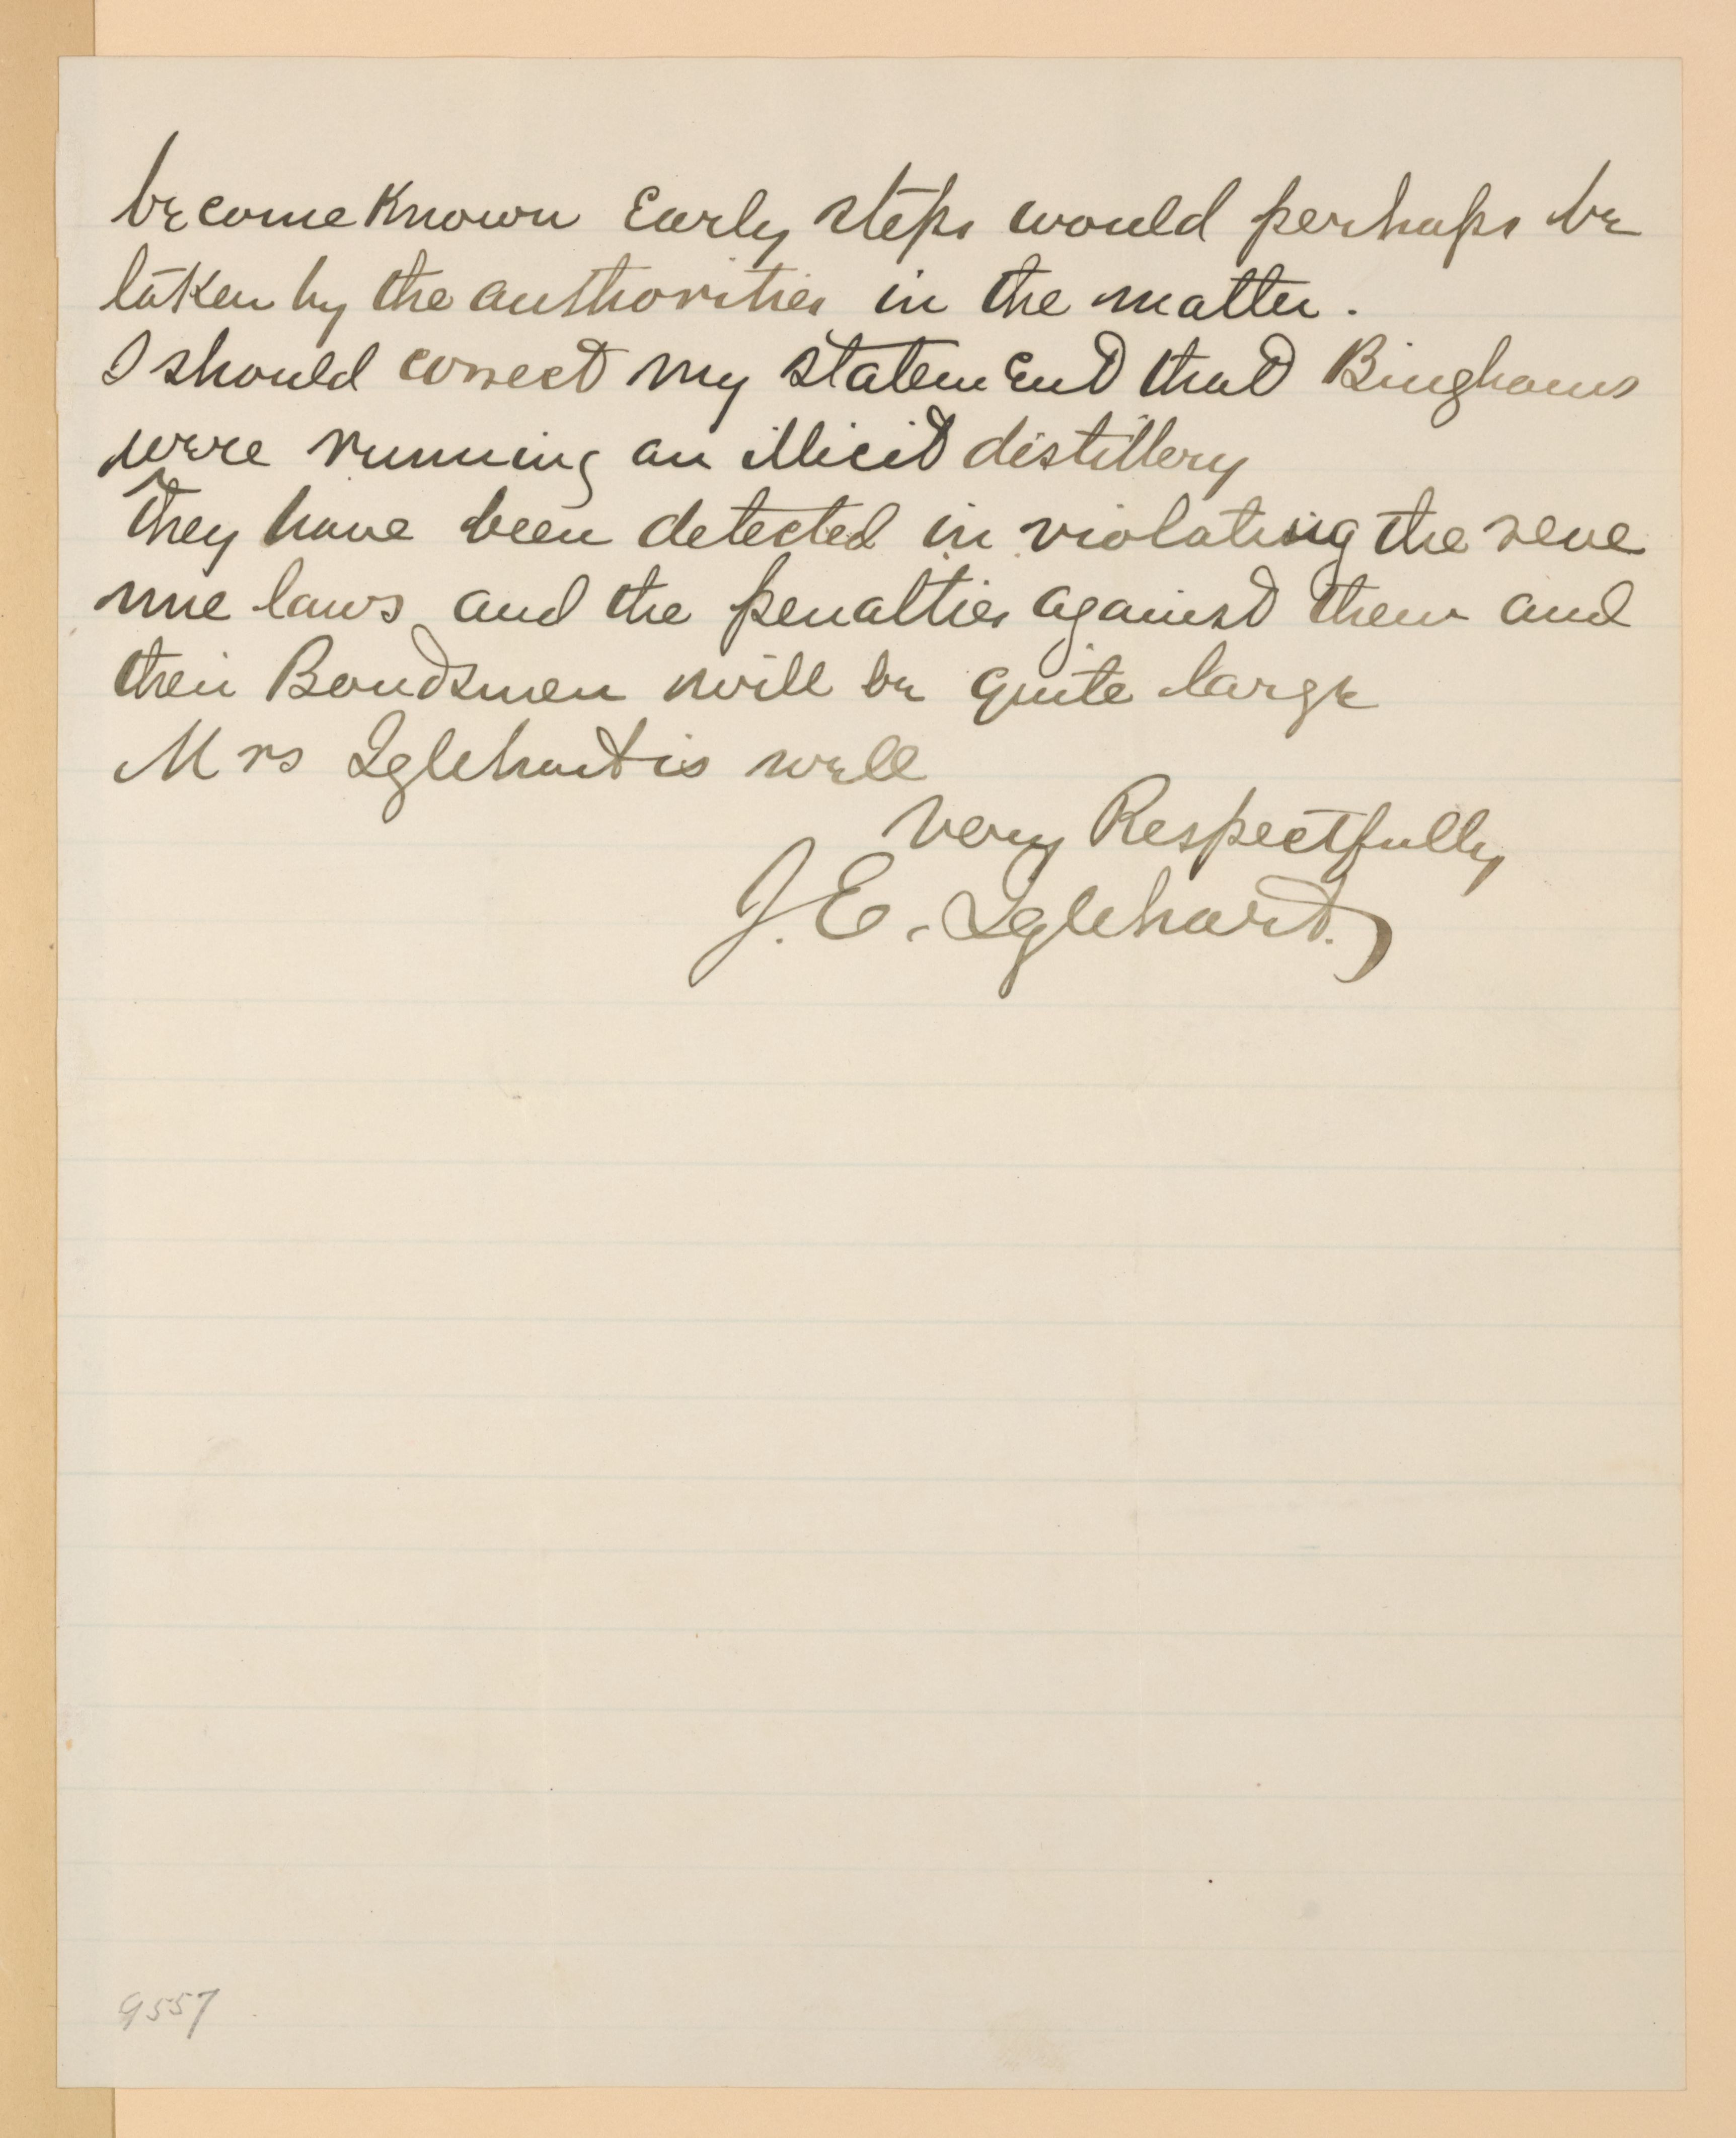 become Known Early steps would perhaps be
taken by the authorities in the matter.
I should correct my statement that Binghams
were running an illicit distillery
they have been detected in violating the reve
nue laws and the penalties against them and
their Bondsmen will be quite large
Mrs Iglehart is well
Very Respectfully
J. E. Iglehart.
9557